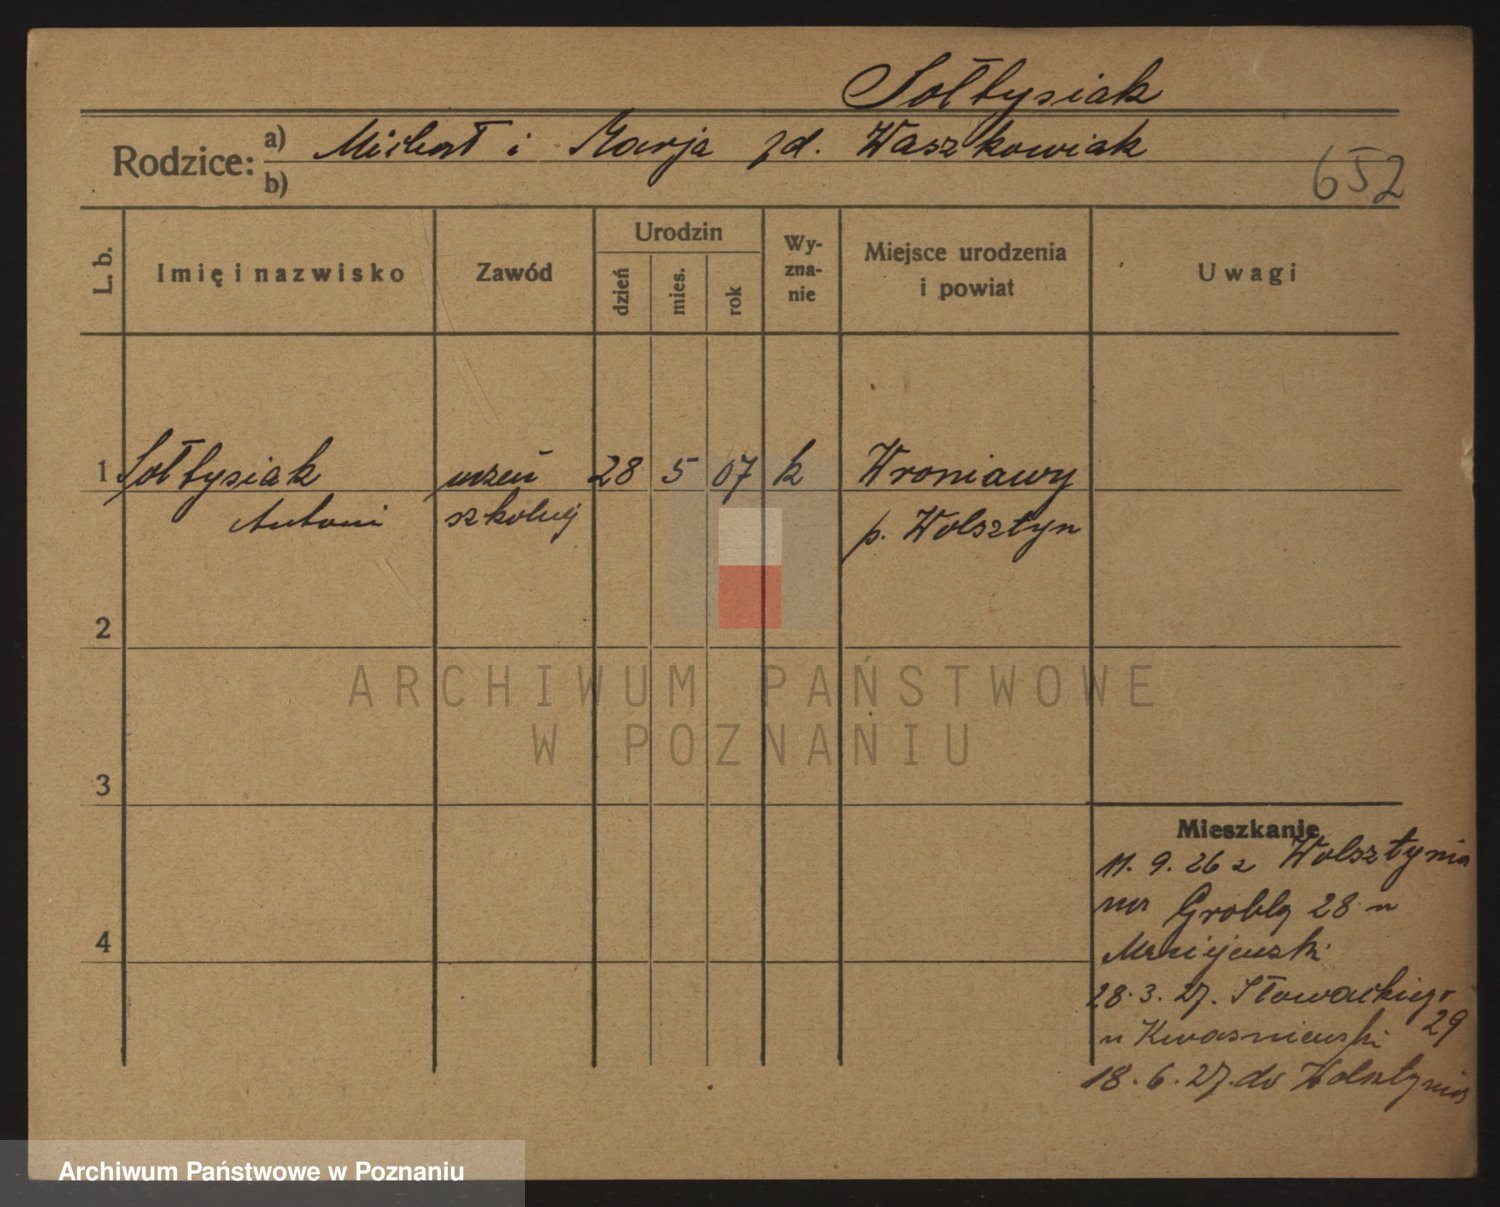 Sołtysiak
Rodzice: a) Michał i Marja zd. Waszkowiak
b)
652
L. b.
Imię i nazwisko
Zawód
Urodzin
dzień
mies.
rok
Wy-
zna-
nie
Miejsce urodzenia
i powiat
Uwagi
1 Sołtysiak uczeń 28 5 07 k Wroniawy
Antoni szkolny p. Wolsztyn
2
3
4
Mieszkanie
11. 9. 26 z Wolsztynia
na Groblą 28 u
Maciejewski
28. 3. 27. Słowackiego
29
u Kwasniewski
18. 6. 27. do Wolsztynia
ARCHIWUM PAŃSTWOWE
W POZNANIU
Archiwum Państwowe w Poznaniu